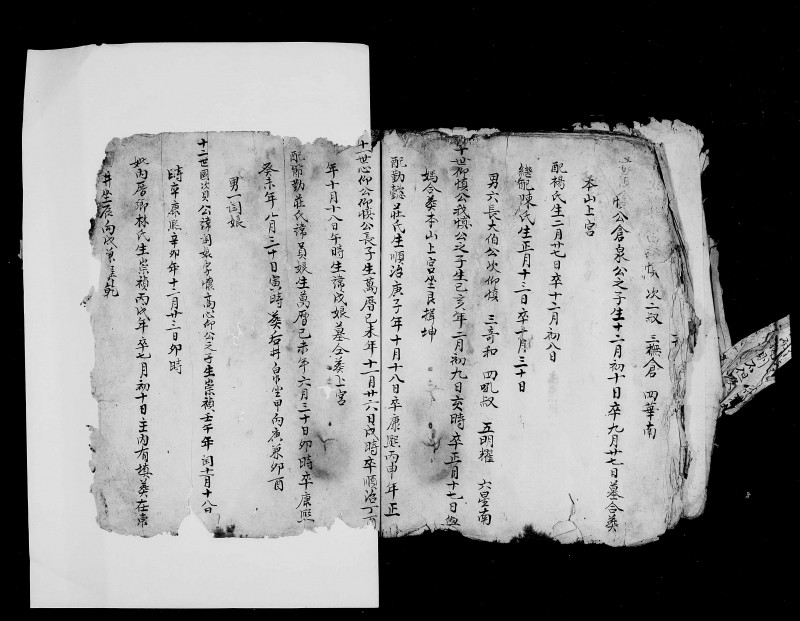 次二叔 三撫倉 四華南
慎公倉泉公之子生十二月初十日卒九月廿七日墓合葬
本山上宮
配楊氏生二月廿七日卒十二月初八日
繼配陳氏生正月十三日卒十月三十日
男六長大伯公次仰慎 三哥和 四叔 五明耀 六星南
十世仰慎公我慎公之子生己亥年二月初九日亥時卒正月十七日
媽合葬本山上宮坐艮揖坤
配勤懿莊氏生順治庚子年十月十八日卒康熙丙申年正
十一世心仰公仰慎公長子生萬曆己未年十一月廿六日戌時卒順治丁酉
年十月十八日午時生諱戊娘墓合葬上宮
配勤莊氏諱員娘生萬曆己未年六月三十日卯時卒康熙
癸未年八月三十日寅時葬后井白坐甲向庚兼卯酉
男一閏娘
十二世國次貢公諱閏娘字懷高心仰公之子生崇禎壬午年閏十一月十八日
時卒康熙辛卯年十二月廿三日卯時
妣丙厝卿林氏生崇禎丙戌年卒七月初十日主內有填葬在常
井坐辰向戌兼乾